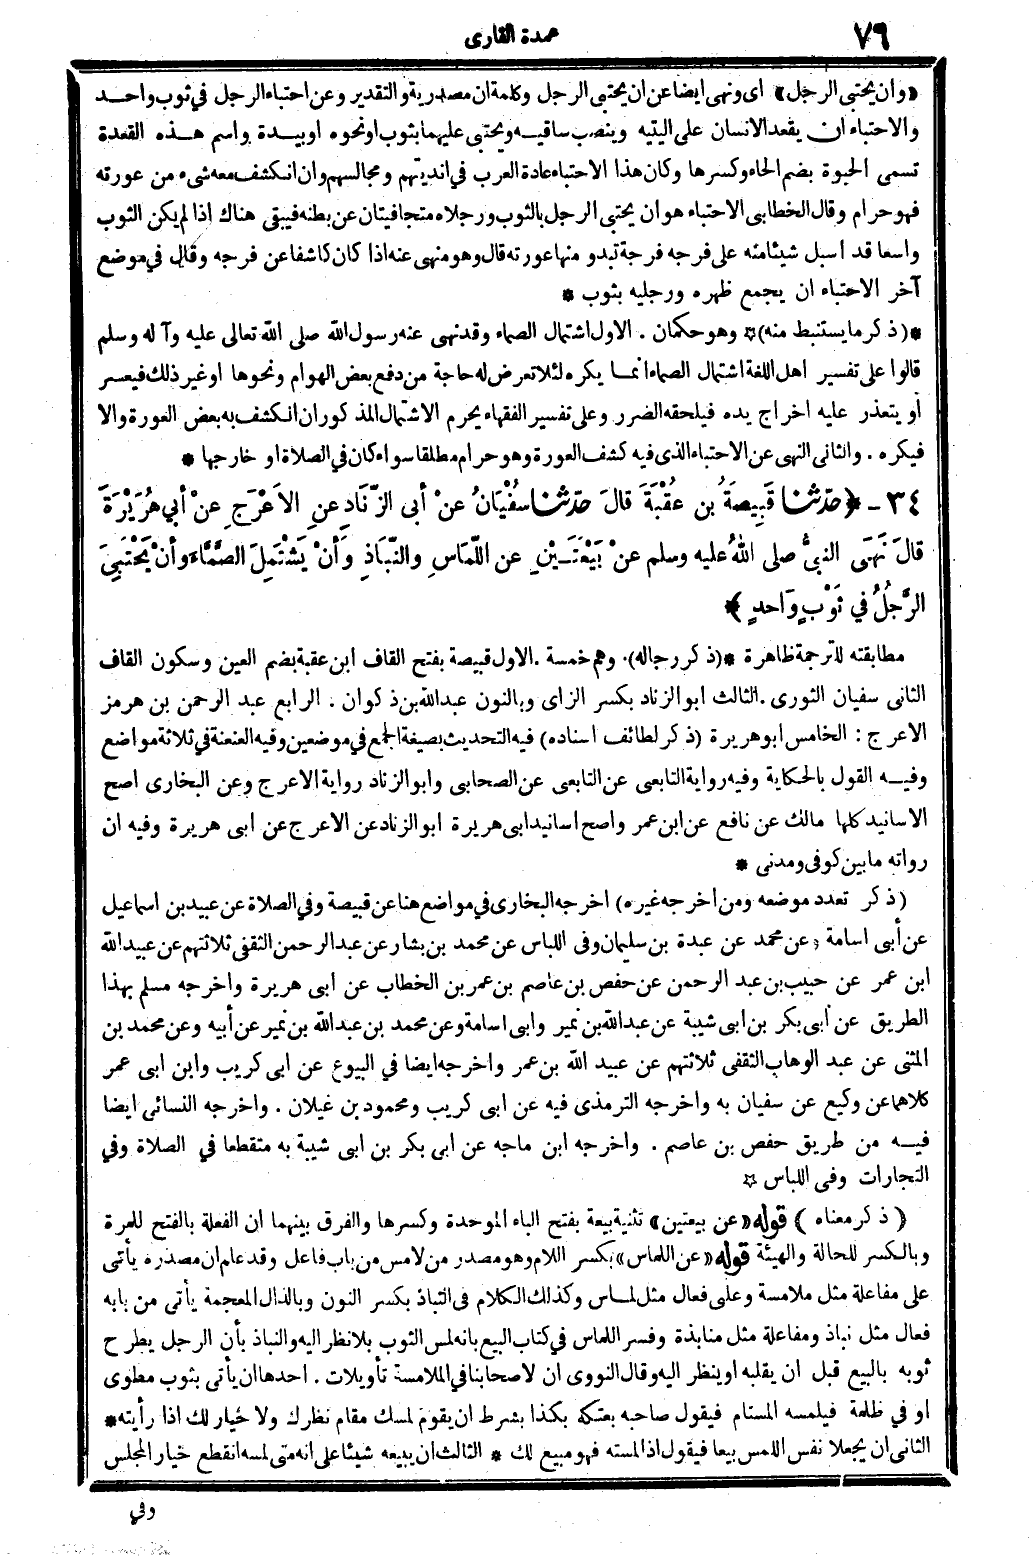 ٧٩
عمدة القارى
«وان يحتبى الرجل» اى ونهى ايضا عن ان يحتبى الرجل وكلمة ان مصدرية والتقدير وعن احتباء الرجل في ثوب واحد
والاحتباء ان يقعد الانسان على اليتيه وينصب ساقيه ويحتبى عليهما بثوب او نحوه او بيده واسم هذه القعدة
تسمى الحبوة بضم الحاء وكسرها وكان هذا الاحتباء عادة العرب في انديتهم ومجالسهم وان انكشف معه شىء من عورته
فهو حرام وقال الخطابى الاحتباء هو ان يحتبى الرجل بالثوب ورجلاه متجافيتان عن بطنه فيبقى هناك اذا لم يكن الثوب
واسعا قد اسبل شيئا منه على فرجه فرجة تبدو منها عورته قال وهو منهى عنه اذا كان كاشفا عن فرجه وقال في موضع
آخر الاحتباء ان يجمع ظهره ورجليه بثوب *
*(ذكر ما يستنبط منه)* وهو حكمان . الاول اشتمال الصماء وقد نهى عنه رسول الله صلى الله تعالى عليه وآله وسلم
قالوا على تفسير اهل اللغة اشتمال الصماء انما يكره لئلا تعرض له حاجة من دفع بعض الهوام ونحوها او غير ذلك فيعسر
أو يتعذر عليه اخراج يده فيلحقه الضرر وعلى تفسير الفقهاء يحرم الاشتمال المذكور ان انكشف به بعض العورة والا
فيكره . والثانى النهى عن الاحتباء الذى فيه كشف العورة وهو حرام مطلقا سواء كان في الصلاة او خارجها *
٣٤ - ﴿حدثنا قَبِيصَةُ بن عُقْبَةَ قالَ حدثنا سُفْيَانُ عنْ أبى الزِّنَادِ عنِ الاَعْرَجِ عنْ أبي هُرَيْرَةَ
قالَ نَهَى النبىُّ صلى اللهُ عليه وسلم عنْ بَيْعَتَيْنِ عن اللِّمَاسِ والنِّبَاذِ وَأنْ يَشْتَمِلَ الصَّمَّاءَ وأنْ يَحْتَبِىَ
الرَّجُلُ في ثَوْبٍ وَاحدٍ﴾*
مطابقته للترجمة ظاهرة *(ذكر رجاله)· وهم خمسة . الاول قبيصة بفتح القاف ابن عقبة بضم العين وسكون القاف
الثانى سفيان الثورى . الثالث ابو الزناد بكسر الزاى وبالنون عبد الله بن ذكوان : الرابع عبد الرحمن بن هرمز
الاعرج : الخامس ابو هريرة (ذكر لطائف اسناده) فيه التحديث بصيغة الجمع في موضعين وفيه العنعنة في ثلاثة مواضع
وفيه القول بالحكاية وفيه رواية التابعى عن التابعى عن الصحابى وابو الزناد رواية الاعرج وعن البخارى اصح
الاسانيد كلها مالك عن نافع عن ابن عمر واصح اسانيد ابى هريرة ابو الزناد عن الاعرج عن ابى هريرة وفيه ان
رواته ما بين كوفى ومدنى *
(ذكر تعدد موضعه ومن اخرجه غيره) اخرجه البخارى في مواضع هنا عن قبيصة وفي الصلاة عن عبيد بن اسماعيل
عن أبى اسامة وعن محمد عن عبدة بن سليمان وفى اللباس عن محمد بن بشار عن عبد الرحمن الثقفى ثلاثتهم عن عبيد الله
ابن عمر عن حبيب بن عبد الرحمن عن حفص بن عاصم بن عمر بن الخطاب عن ابى هريرة واخرجه مسلم بهذا
الطريق عن أبى بكر بن ابى شيبة عن عبد الله بن نمير وابى اسامة وعن محمد بن عبد الله بن نمير عن أبيه وعن محمد بن
المثنى عن عبد الوهاب الثقفى ثلاثتهم عن عبيد الله بن عمر واخرجه ايضا في البيوع عن ابى كريب وابن ابى عمر
كلاهما عن وكيع عن سفيان به واخرجه الترمذى فيه عن ابى كريب ومحمود بن غيلان . واخرجه النسائى ايضا
فيه من طريق حفص بن عاصم . واخرجه ابن ماجه عن ابى بكر بن ابى شيبة به متقطعا في الصلاة وفي
التجارات وفى اللباس *
(ذكر معناه) قوله «عن بيعتين» تثنية بيعة بفتح الباء الموحدة وكسرها والفرق بينهما ان الفعلة بالفتح للمرة
وبالكسر للحالة والهيئة قوله «عن اللماس» بكسر اللام وهو مصدر من لامس من باب فاعل وقد علم ان مصدره يأتى
على مفاعلة مثل ملامسة وعلى فعال مثل لماس وكذلك الكلام فى النباذ بكسر النون وبالذال المعجمة يأتى من بابه
فعال مثل نباذ ومفاعلة مثل منابذة وفسر اللماس في كتاب البيع بانه لمس الثوب بلا نظر اليه والنباذ بأن الرجل يطرح
ثوبه بالبيع قبل ان يقلبه او ينظر اليه وقال النووى ان لاصحابنا في الملامسة تأويلات . احدها ان يأتى بثوب مطوى
او في ظلمة فيلمسه المستام فيقول صاحبه بعتكه بكذا بشرط ان يقوم لمسك مقام نظرك ولا خيار لك اذا رأيته*
الثانى ان يجعلا نفس اللمس بيعا فيقول اذا لمسته فهو مبيع لك * الثالث ان يبيعه شيئا على انه متى لمسه انقطع خيار المجلس
وفي